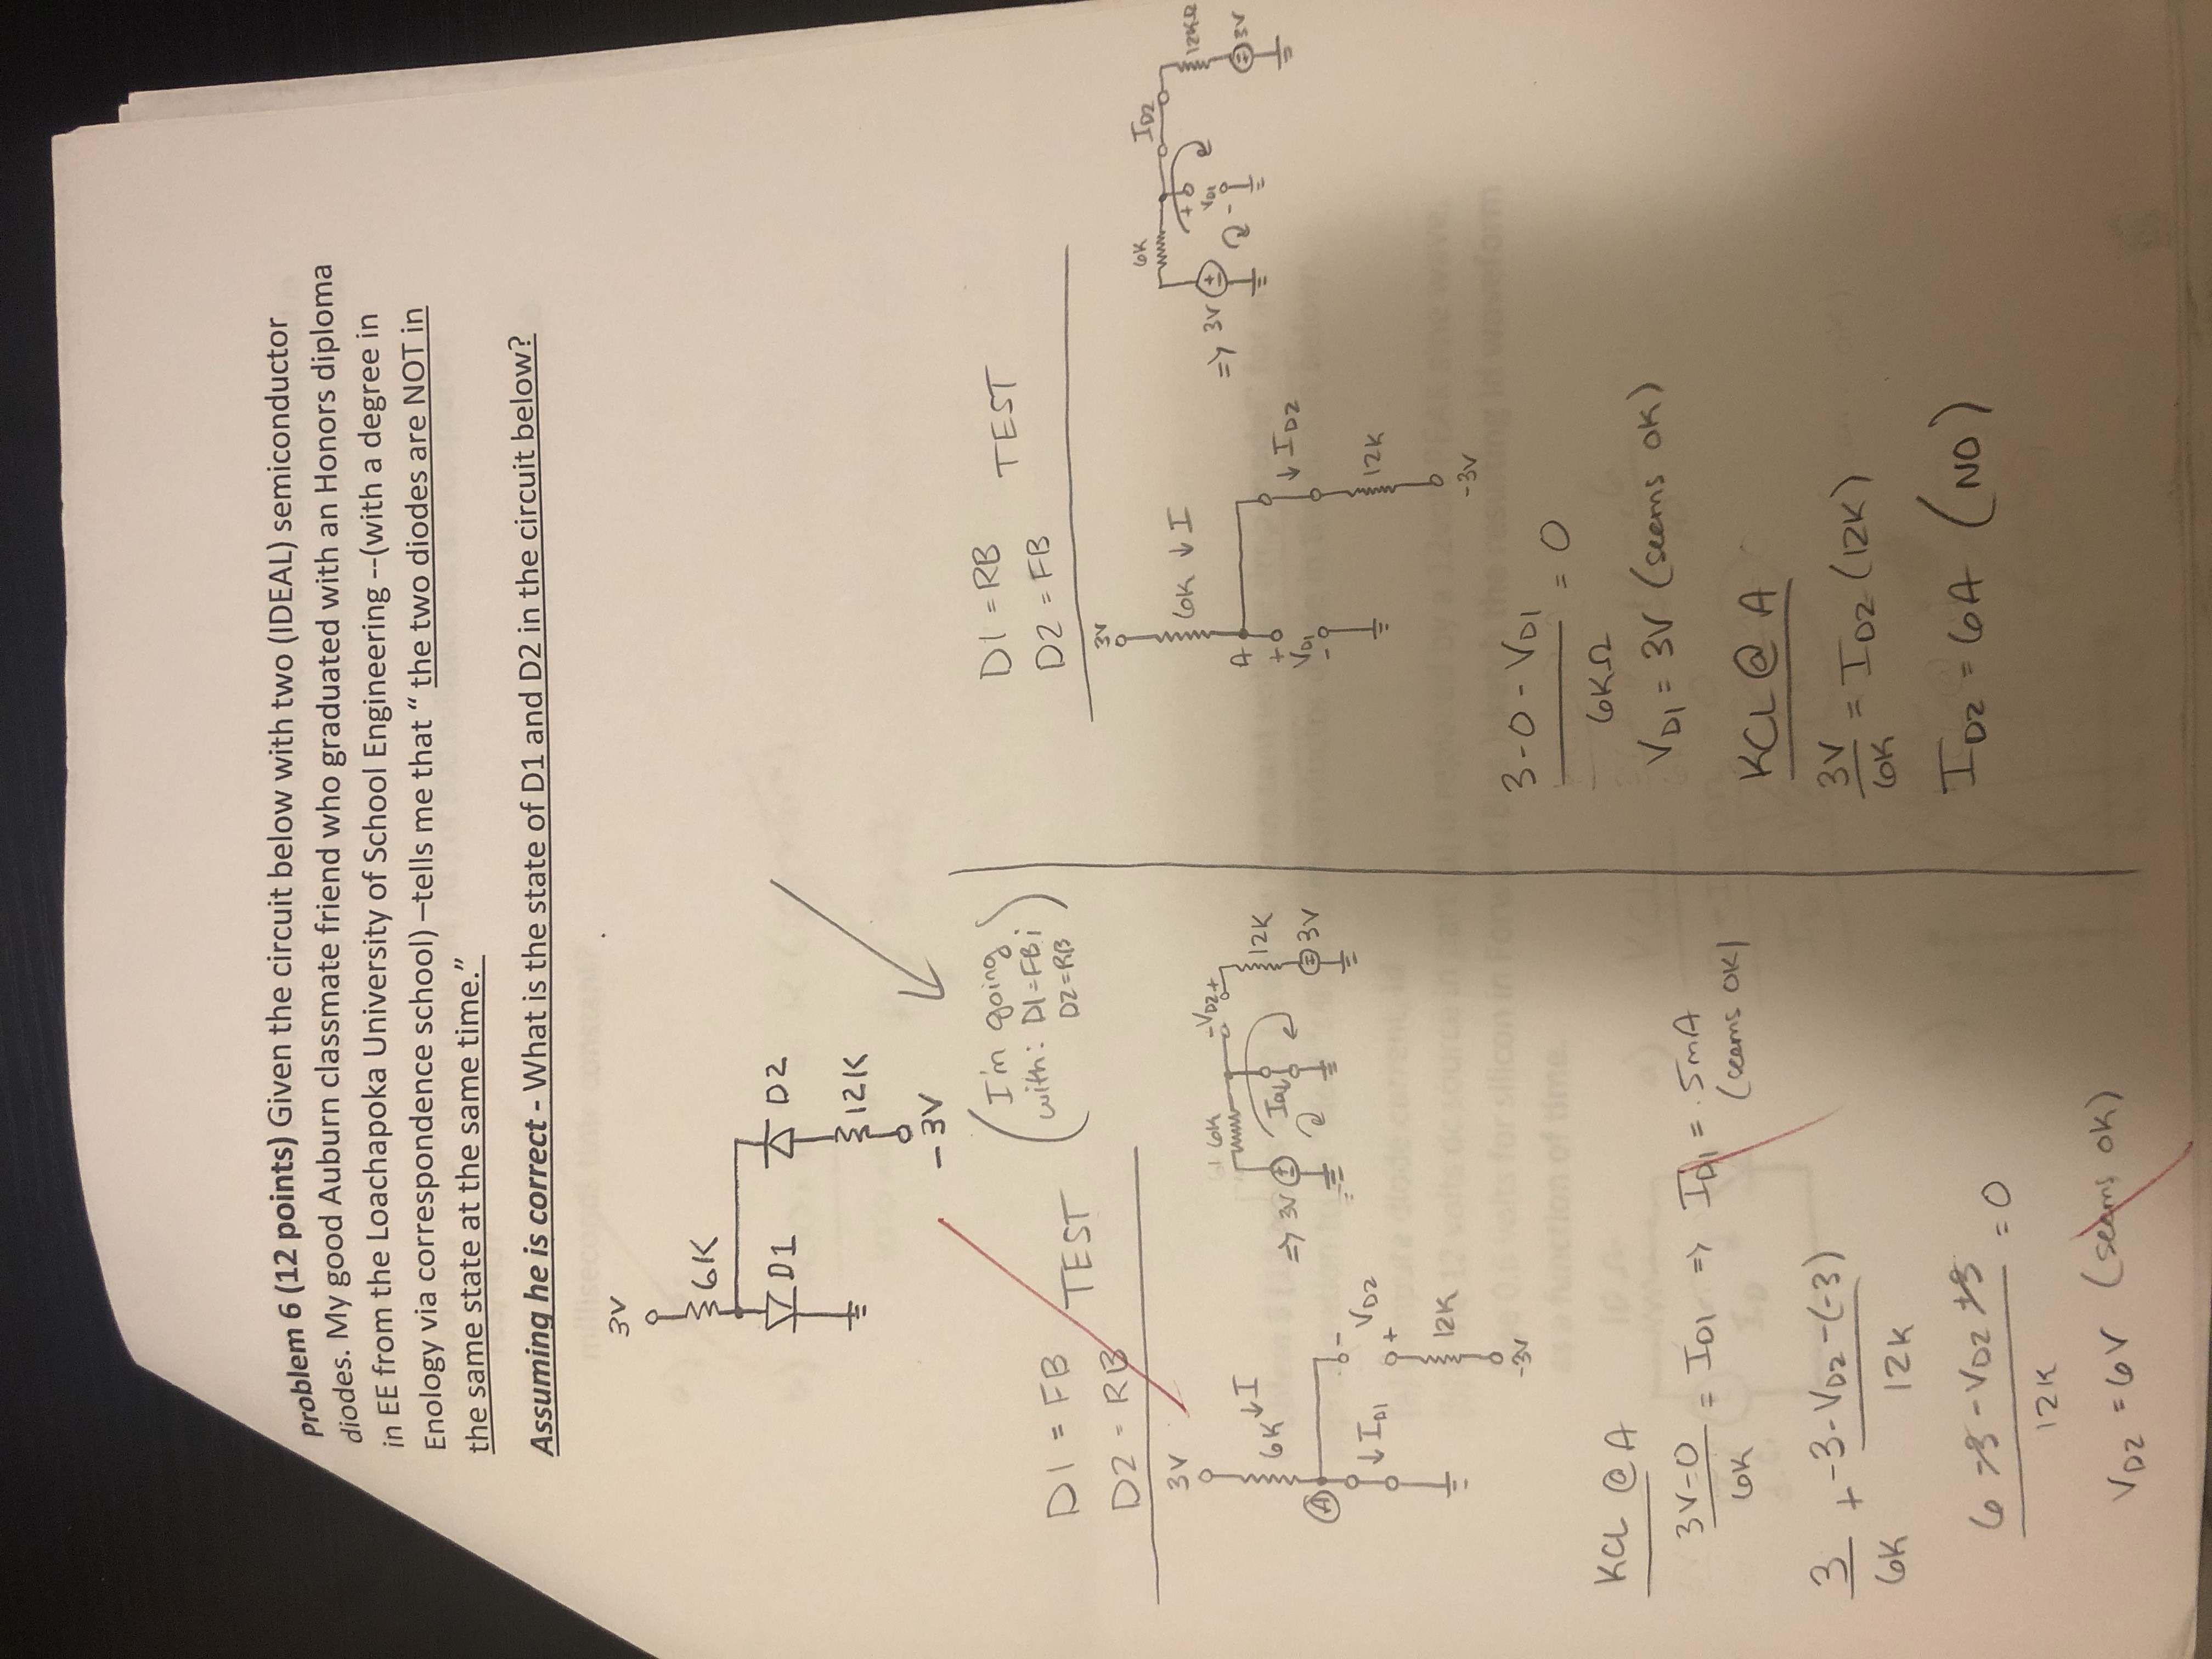 Problem 6 (12 points) Given the circuit below with two (IDEAL) semiconductor
diodes. My good Auburn classmate friend who graduated with an Honors diploma
in EE from the Loachapoka University of School Engineering --(with a degree in
Enology via correspondence school) –tells me that “ the two diodes are NOT in
the same state at the same time.”
Assuming he is correct - What is the state of D1 and D2 in the circuit below?
3V
6K
D1
D2
12K
-3V
(I'm going
with: D1=FB;
D2=RB)
D1 = FB
D2 = RB
TEST
3V
6K ↓I
A
↓ ID1
-
VD2
+
12K
-3V
=> 3V
6K
-VD2+
ID1↓
12K
3V
KCL @ A
3V-0 / 6K = ID1 => ID1 = .5mA
(seems OK)
3/6K + -3-VD2-(-3) / 12K
6-3-VD2+3 / 12K = 0
VD2 = 6V (seems ok)
D1 = RB
D2 = FB
TEST
3V
6K ↓ I
A
+
VD1
-
↓ ID2
12K
-3V
=> 3V
6K
ID2
+
VD1
-
12KΩ
3V
3-0-VD1 / 6KΩ = 0
VD1 = 3V (seems ok)
KCL @ A
3V / 6K = ID2 (12K)
ID2 = 6A (NO)